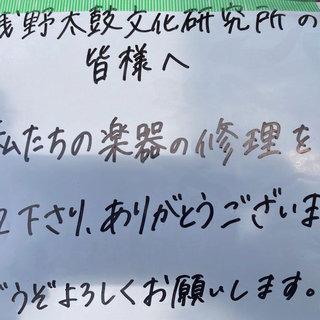 浅野太鼓文化研究所の
皆様へ
私たちの楽器の修理を
下さり、ありがとうございま
どうぞよろしくお願いします。